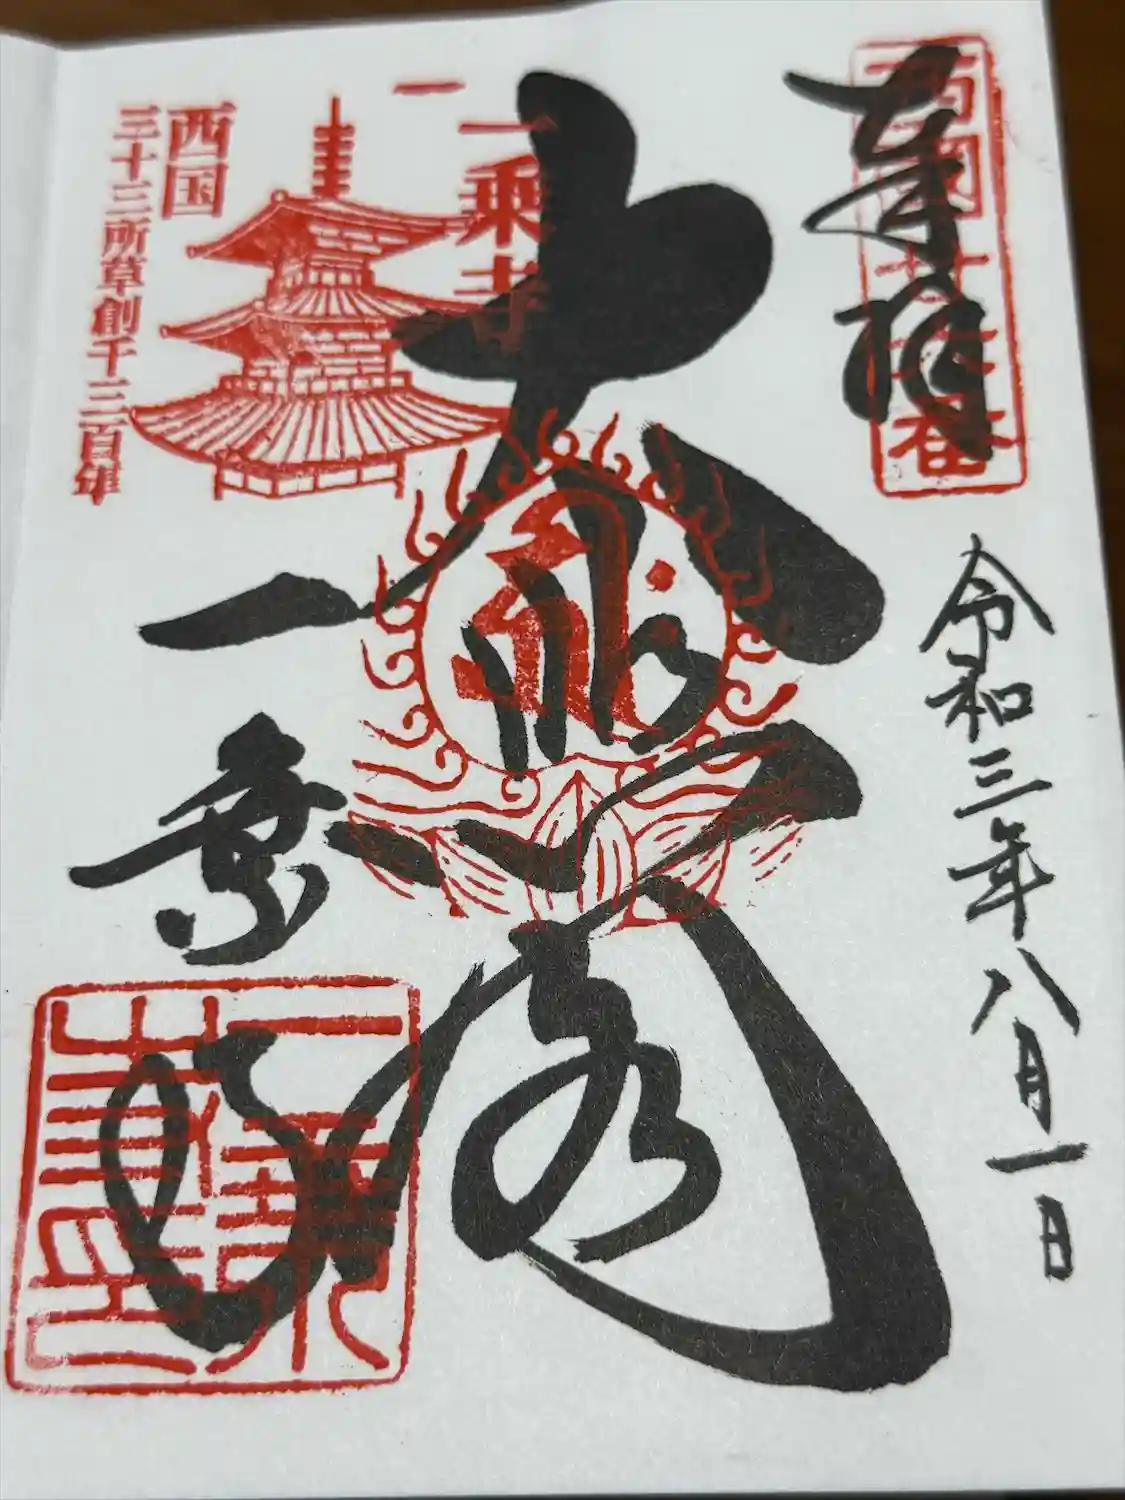 奉拝
西國廿六番
令和三年八月一日
大悲閣
一乗寺
一乗寺
西国
三十三所草創千三百年
一乗寺印